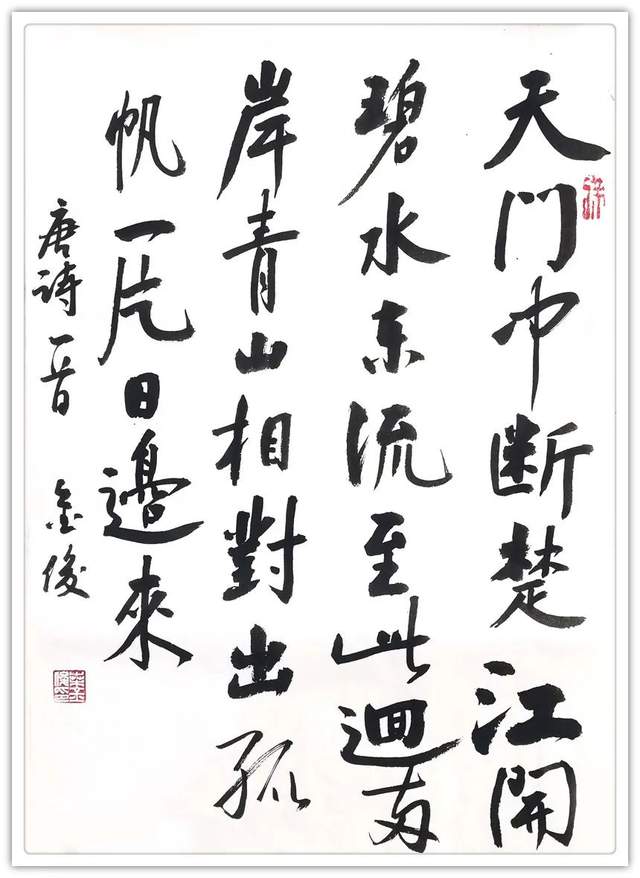 天門中断楚江開
碧水東流至此迴兩
岸青山相對出孤
帆一片日邊來
唐詩一首 金俊